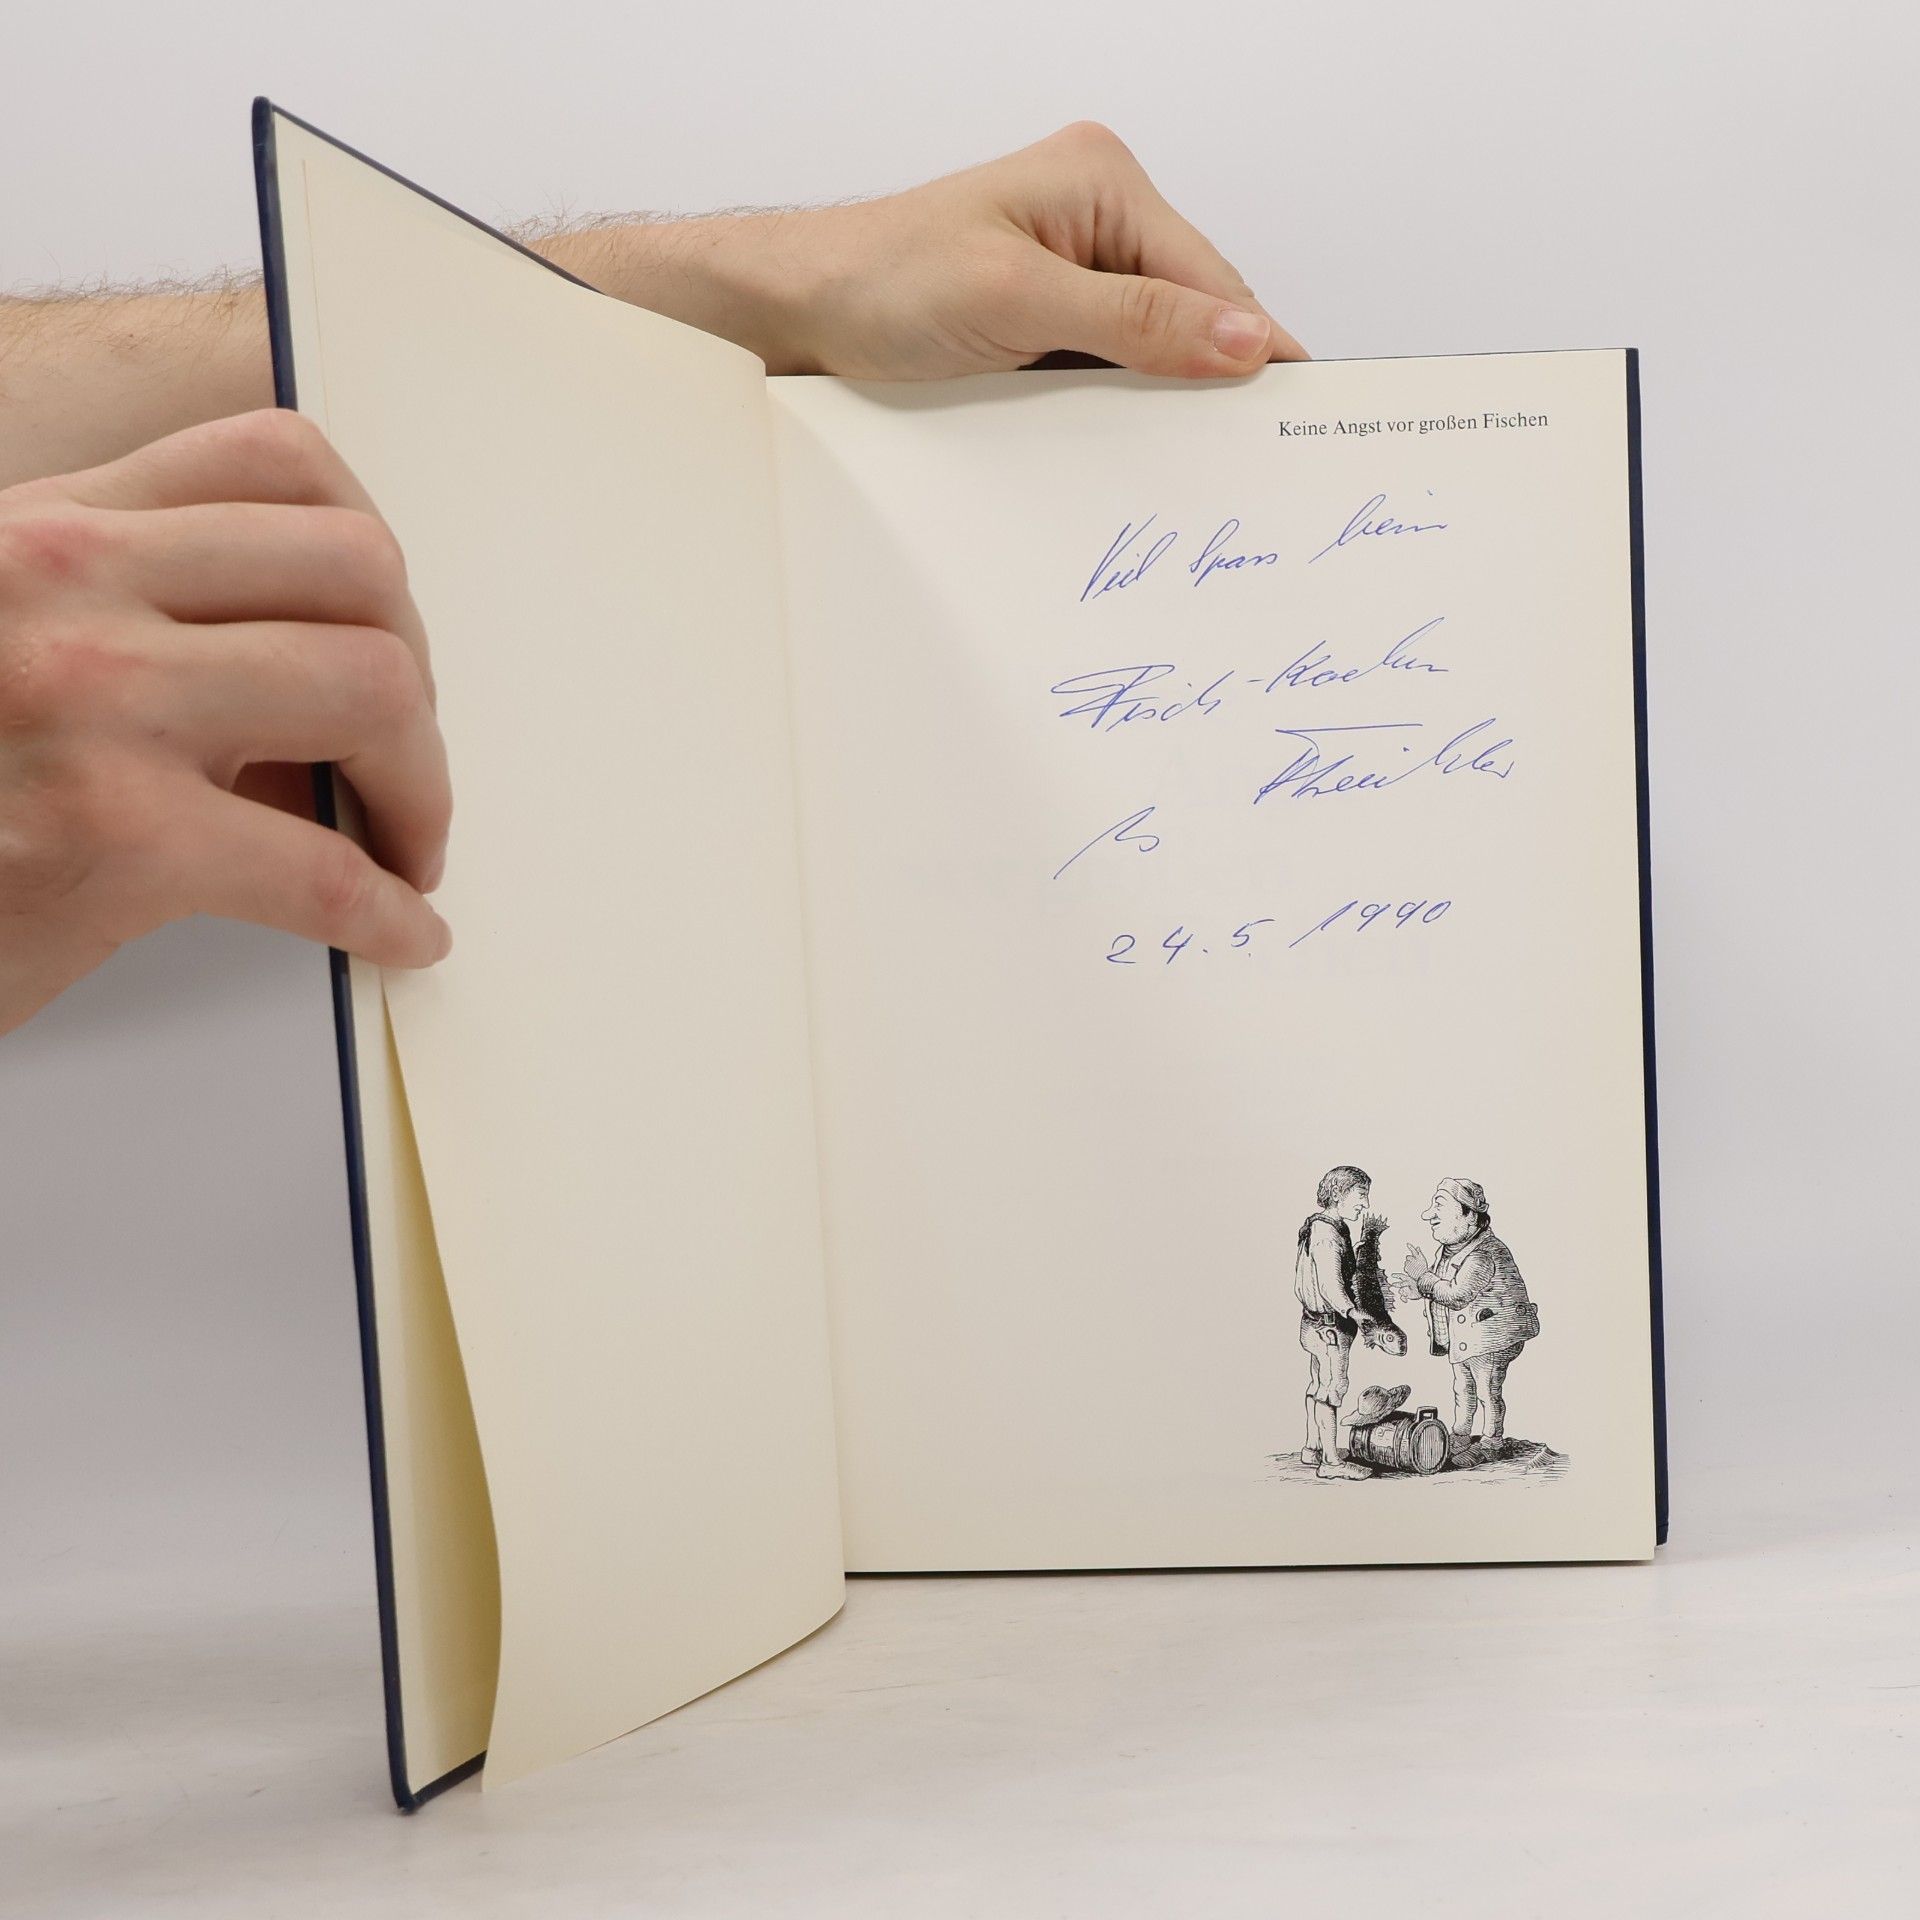 Keine Angst vor großen Fischen
Viel Spass beim
Fisch-Kochen
24.5.1990